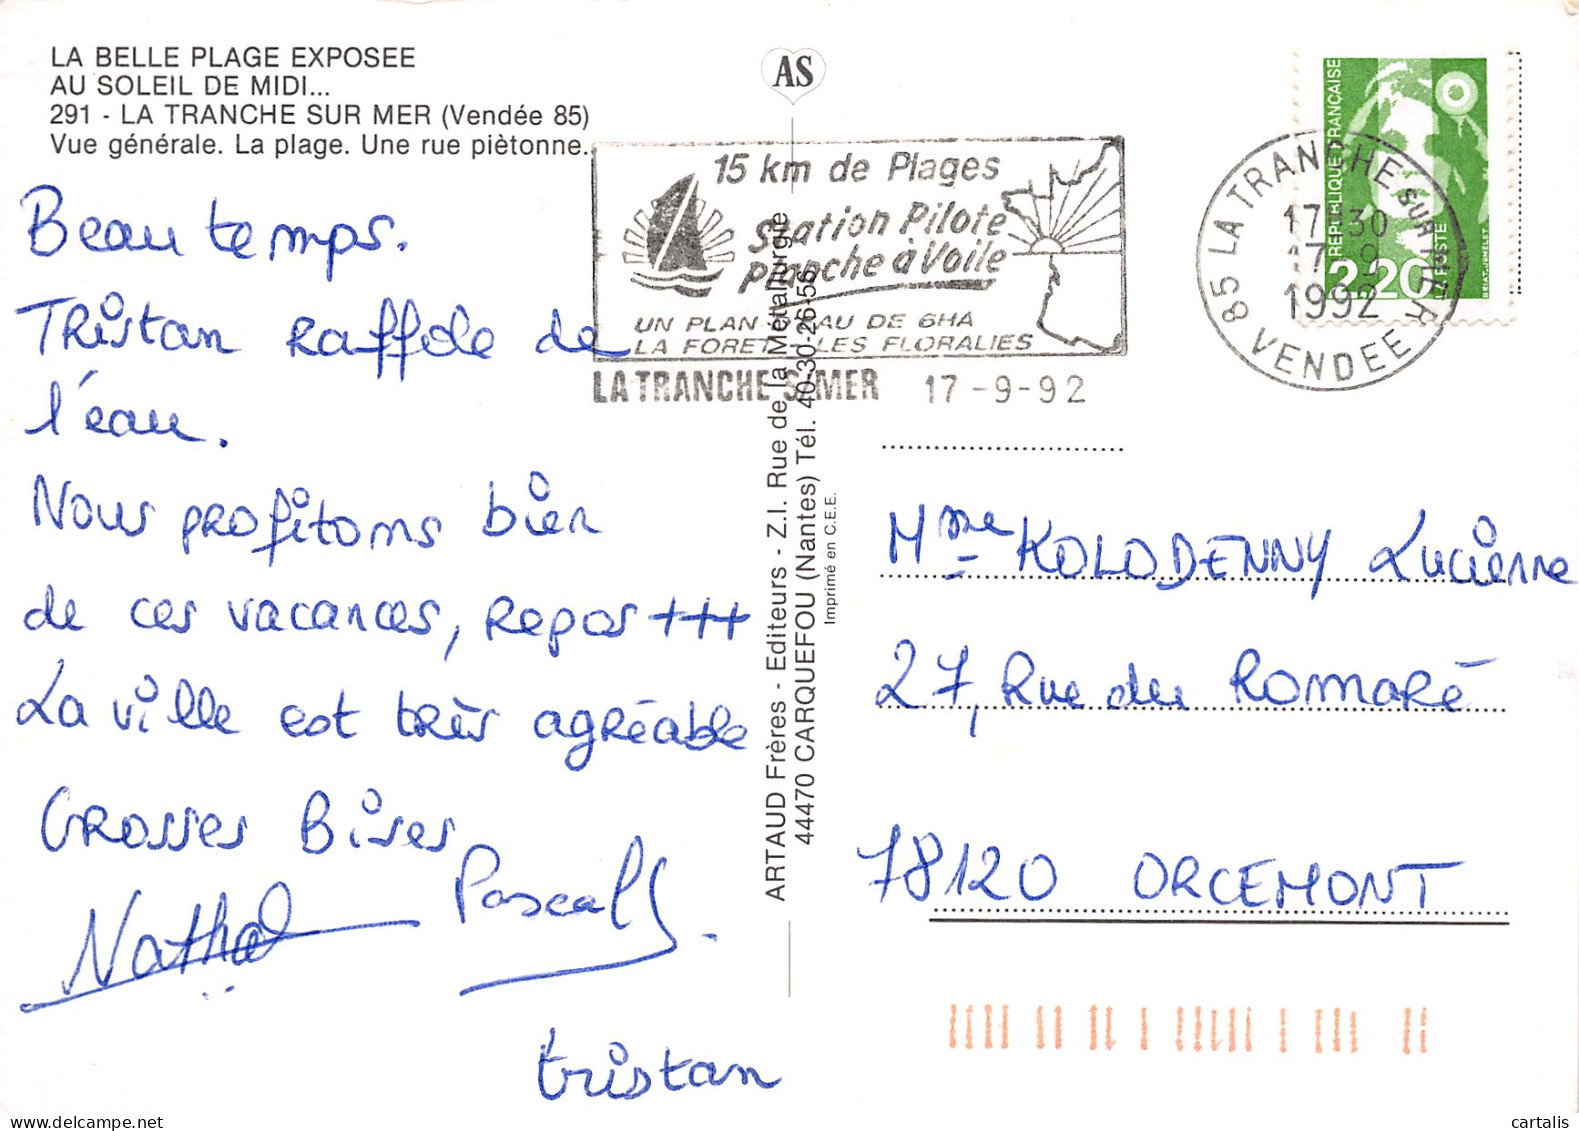 LA BELLE PLAGE EXPOSEE
AU SOLEIL DE MIDI...
291 - LA TRANCHE SUR MER (Vendée 85)
Vue générale. La plage. Une rue piètonne.
Beau temps.
Tristan raffole de
l'eau.
Nous profitons bien
de ces vacances, repos +++
La ville est très agréable
Grosses Bises
Pascal
tristan
AS
15 km de Plages
Station Pilote
Planche à Voile
UN PLAN D'EAU DE 6HA
LA FORET LES FLORALIES
LA TRANCHE S/MER 17-9-92
ARTAUD Frères - Editeurs - Z.I. Rue de la Métallurgie
44470 CARQUEFOU (Nantes) Tél. 40-30-26-56
Imprimé en C.E.E.
REPUBLIQUE FRANÇAISE
2,20
POSTE
85 LA TRANCHE SUR MER
17H30
17-9
1992
VENDEE
Mme KOLODENNY Lucienne
27, Rue du Romaré
78120 ORCEMONT
cartalis
delcampe.net